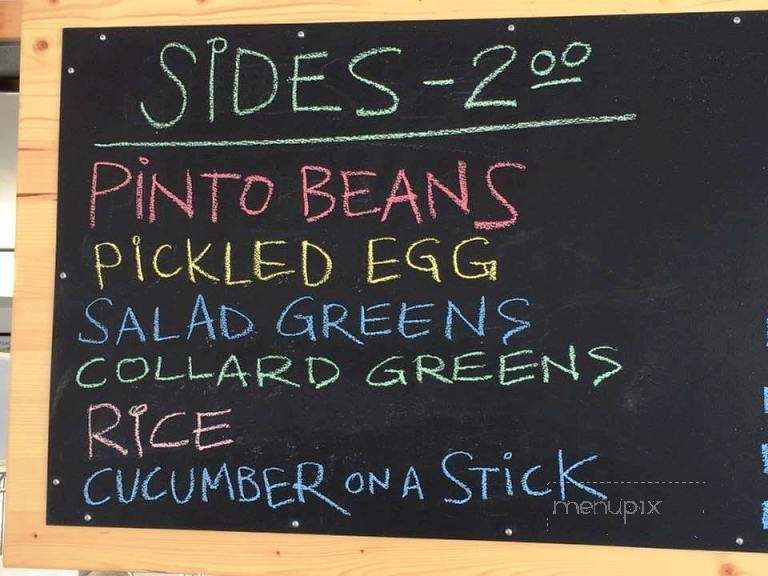 SIDES - 2.00
PINTO BEANS
PICKLED EGG
SALAD GREENS
COLLARD GREENS
RICE
CUCUMBER ON A STICK
menupix